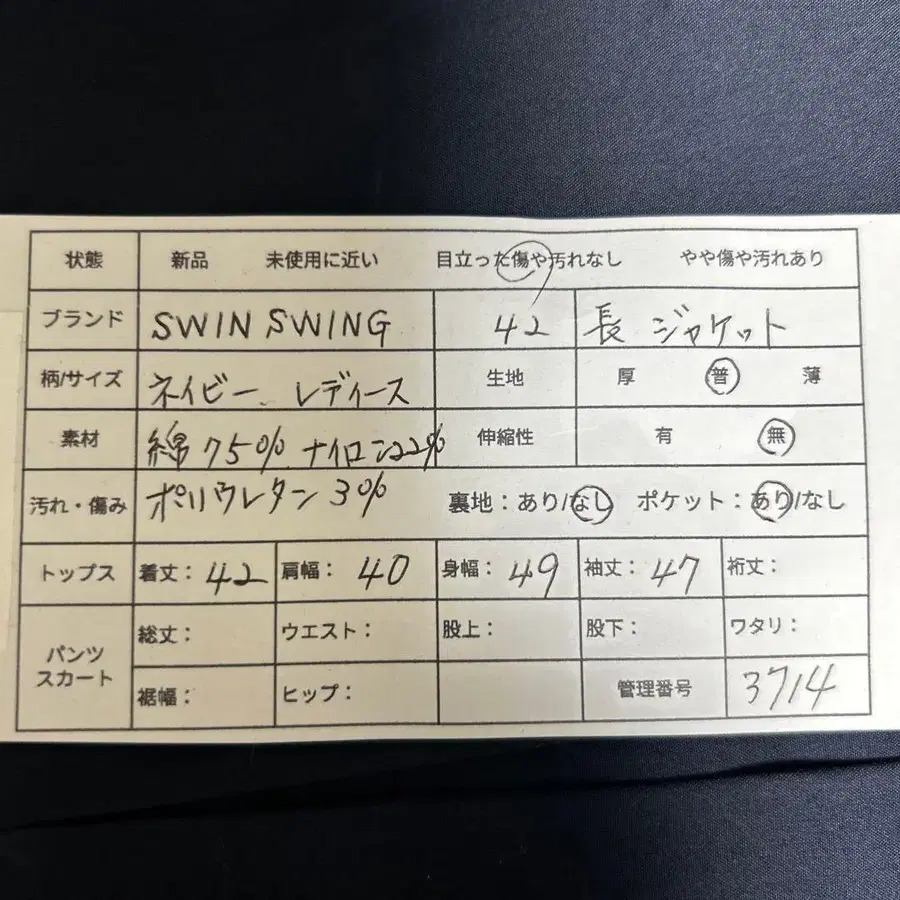 状態 新品 未使用に近い 目立った傷や汚れなし やや傷や汚れあり
ブランド SWIN SWING 42 長 ジャケット
柄/サイズ ネイビー、レディース 生地 厚 普 薄
素材 綿75% ナイロン22% 伸縮性 有 無
汚れ・傷み ポリウレタン3% 裏地:あり/なし ポケット:あり/なし
トップス 着丈:42 肩幅:40 身幅:49 袖丈:47 裄丈:
パンツ スカート 総丈: ウエスト: 股上: 股下: ワタリ:
裾幅: ヒップ: 管理番号 3714